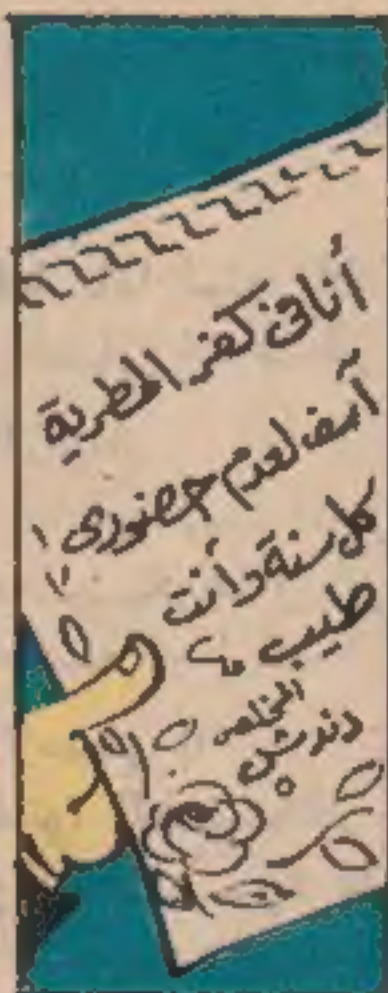 أنا فى كفر المطرية
آسف لعدم حضورى !!
كل سنة وأنت
طيب ،،
المخلص
دندش